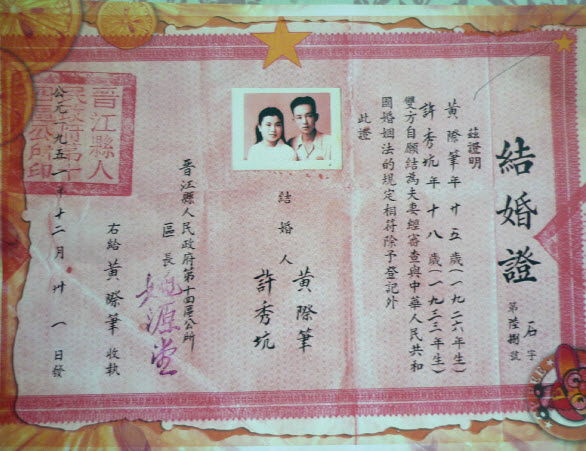 結婚證
石字
第陸捌號
茲證明
黃際筆年廿五歲(一九二六年生)
許秀坑年十八歲(一九三三年生)
雙方自願結為夫妻經審查與中華人民共和
國婚姻法的規定相符除予登記外
此證
結婚人
黃際筆
許秀坑
晉江縣人民政府第十四區公所
區長
姚源堂
右給黃際筆收執
公元一九五一年十二月卅一日發
晉江縣人
民政府第十
四區公所印